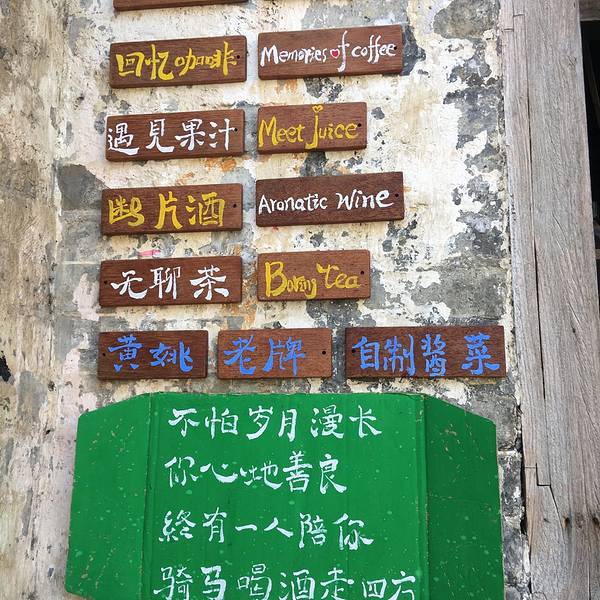 回忆咖啡
Memories of coffee
遇見果汁
Meet juice
片酒
Aronatic Wine
无聊茶
Boring Tea
黄姚
老牌
自制醬菜
不怕岁月漫长
你心地善良
終有一人陪你
骑马喝酒走四方